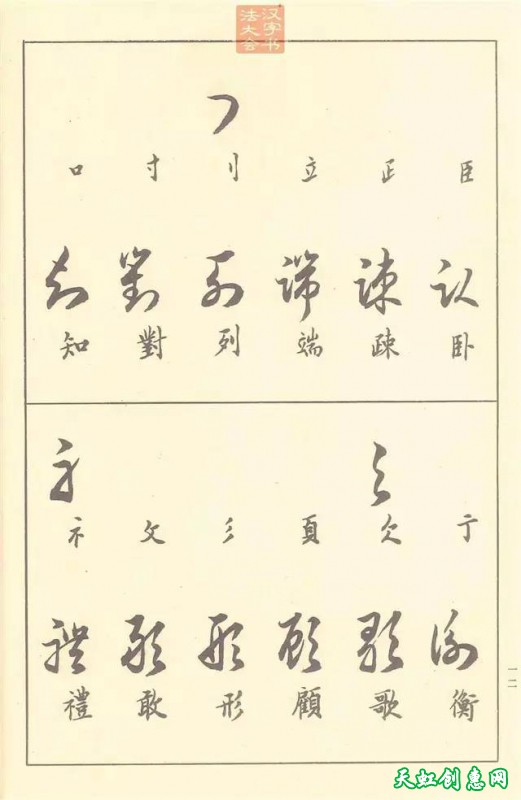 汉字书
法大会
臣 正 立 刂 寸 口
卧 疎 端 列 對 知
亍 欠 頁 彡 攵 礻
衡 歌 顧 形 敢 禮
一二
天虹创惠网